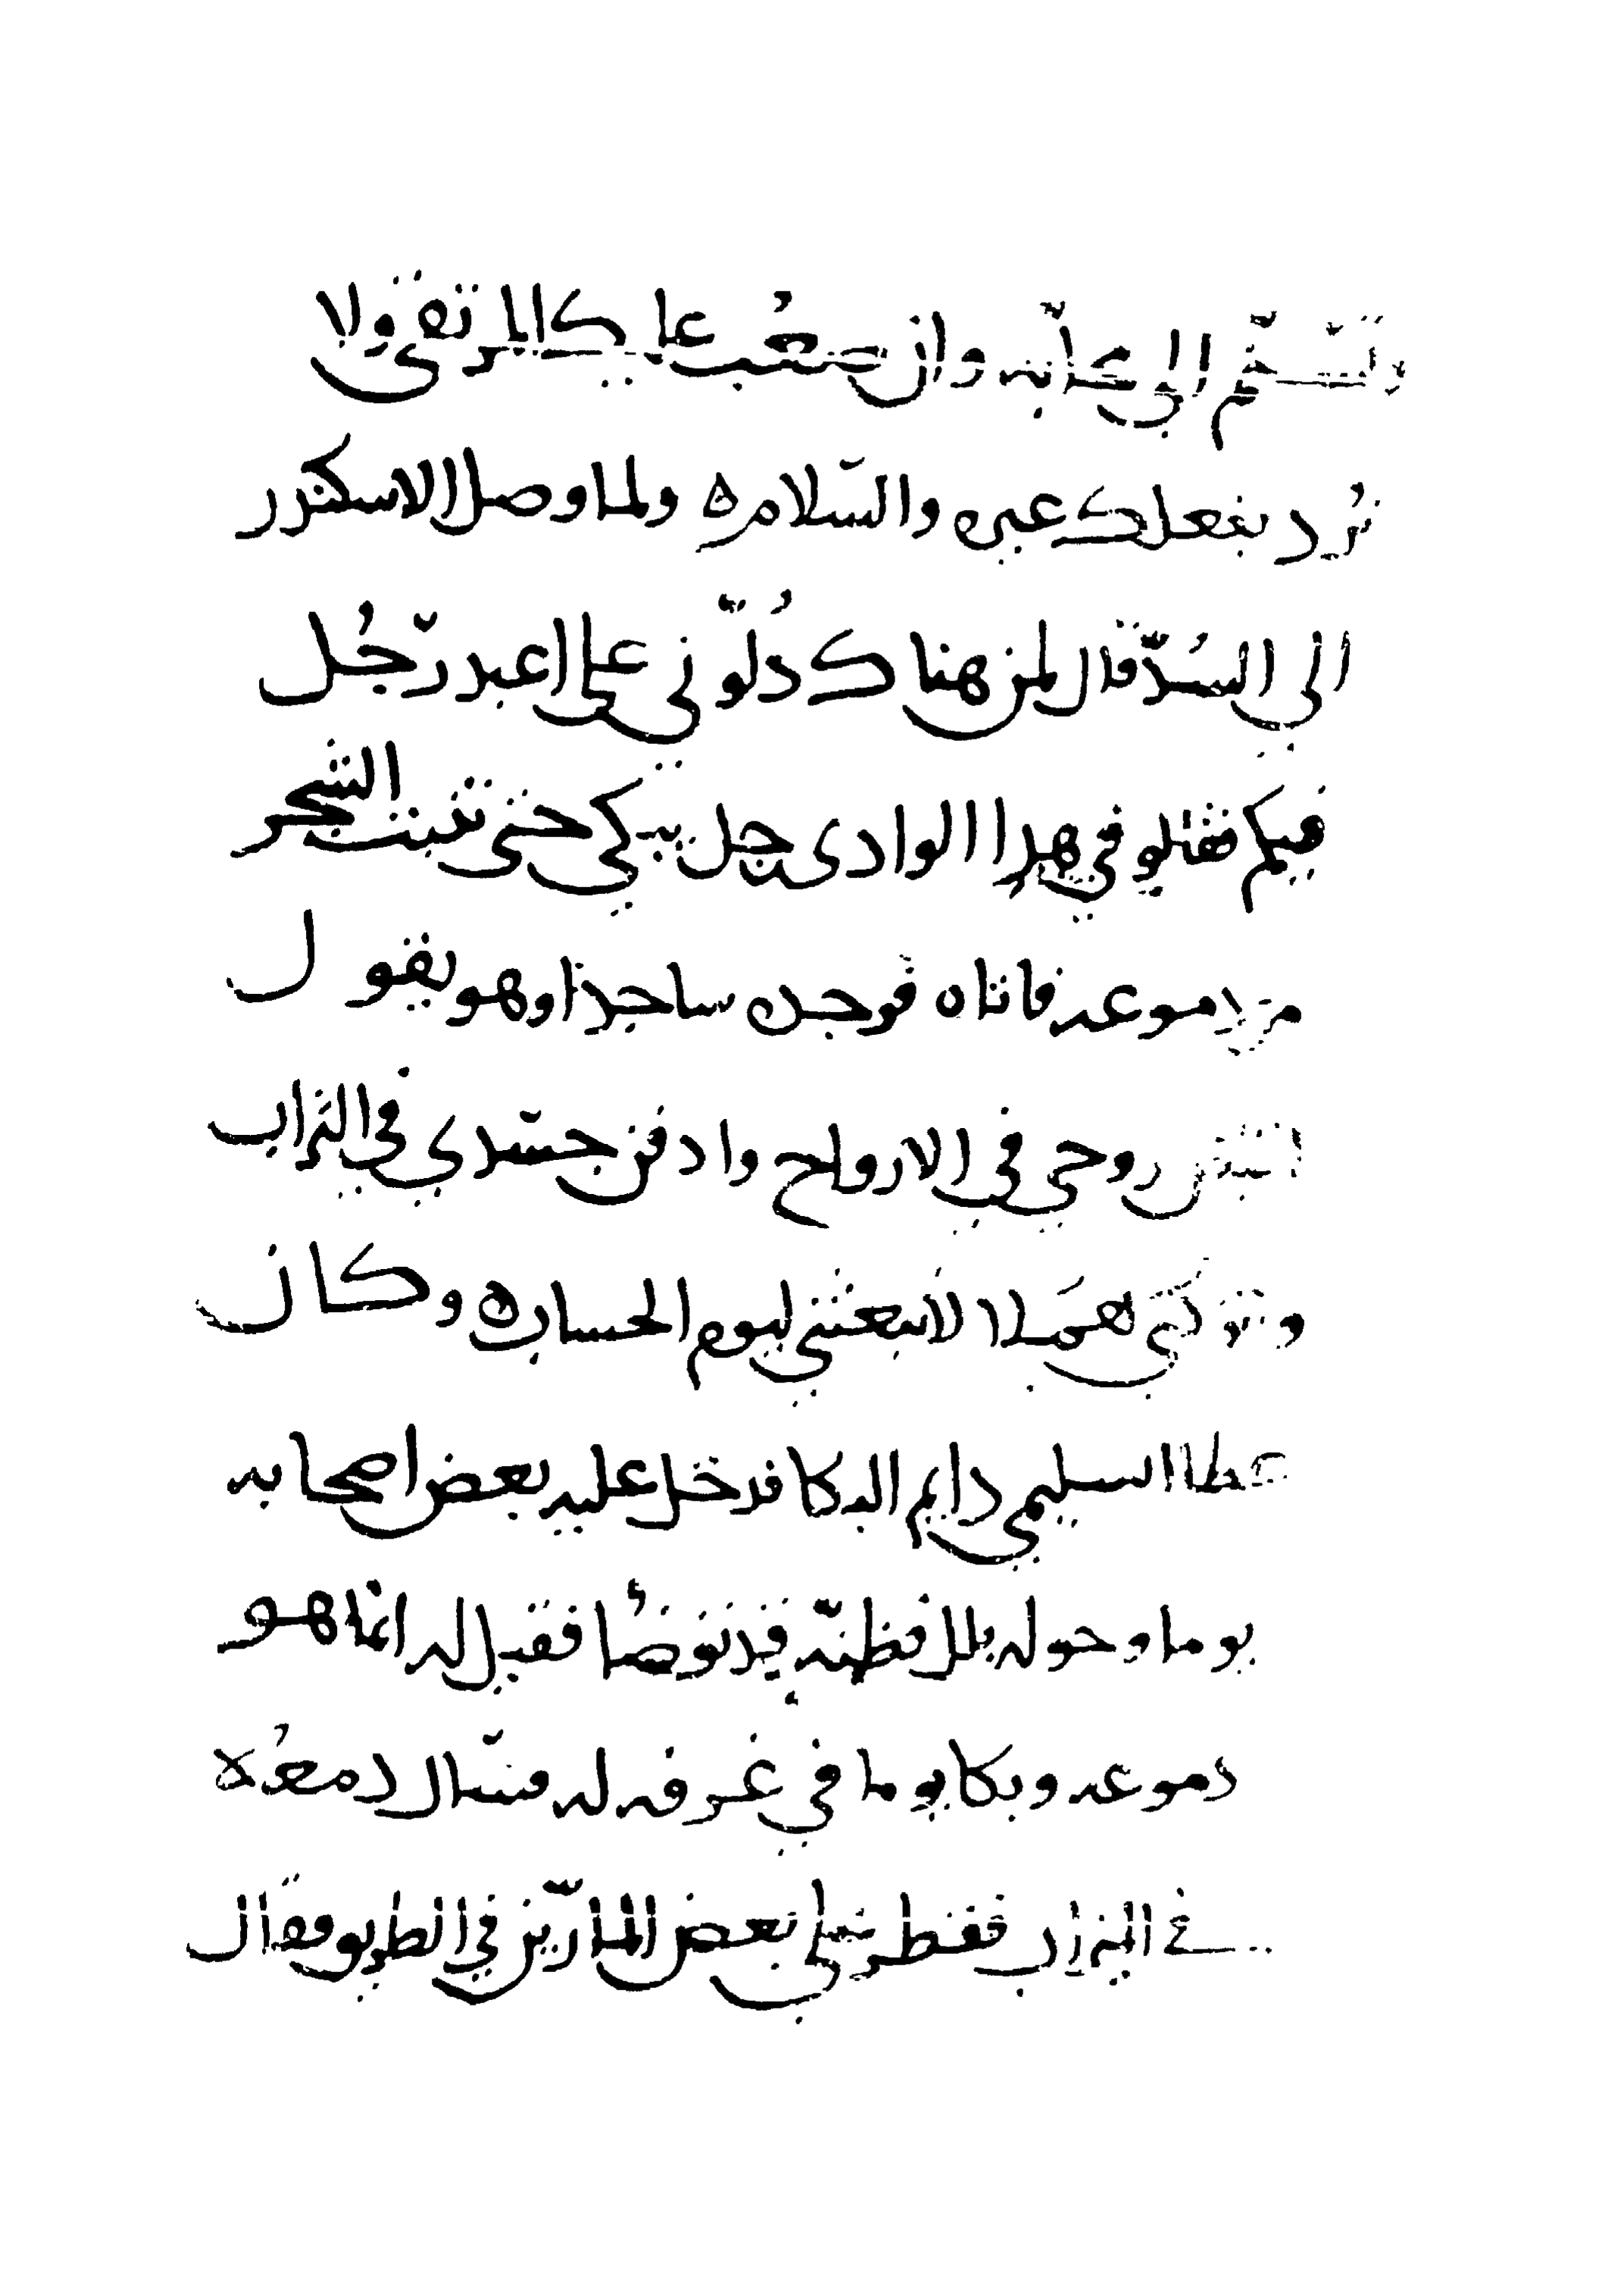 وتسنم الى محرابه وان صعُب عليك المرتقى ولا
تُرد بفعلك عيى والسّلام ه ولما وصل الاسكندر
الى السُدّ قال لمن هناك دُلّوني على اعبد رّجُل
فيكم فقالو في هذا الوادى رجل يبكي حتى تنبت الشجر
من دموعه فاتاه فوجده ساجدًا وهو يقول
اقبض روحي في الارواح وادفن جسّدي في التراب
وتتركني هَمَلا لا تبعثني ليوم الحساب ه وكان
عطا السليمي دايم البكا فدخل عليه بعض اصحابه
يوما وحوله بلل فظنّه قد توضُا فقيل له انما هو
دموعه وبكا يوما في غرفه له فسّال دمعُه
في الميزاب فقطر على بعض المارّين في الطريق فقال